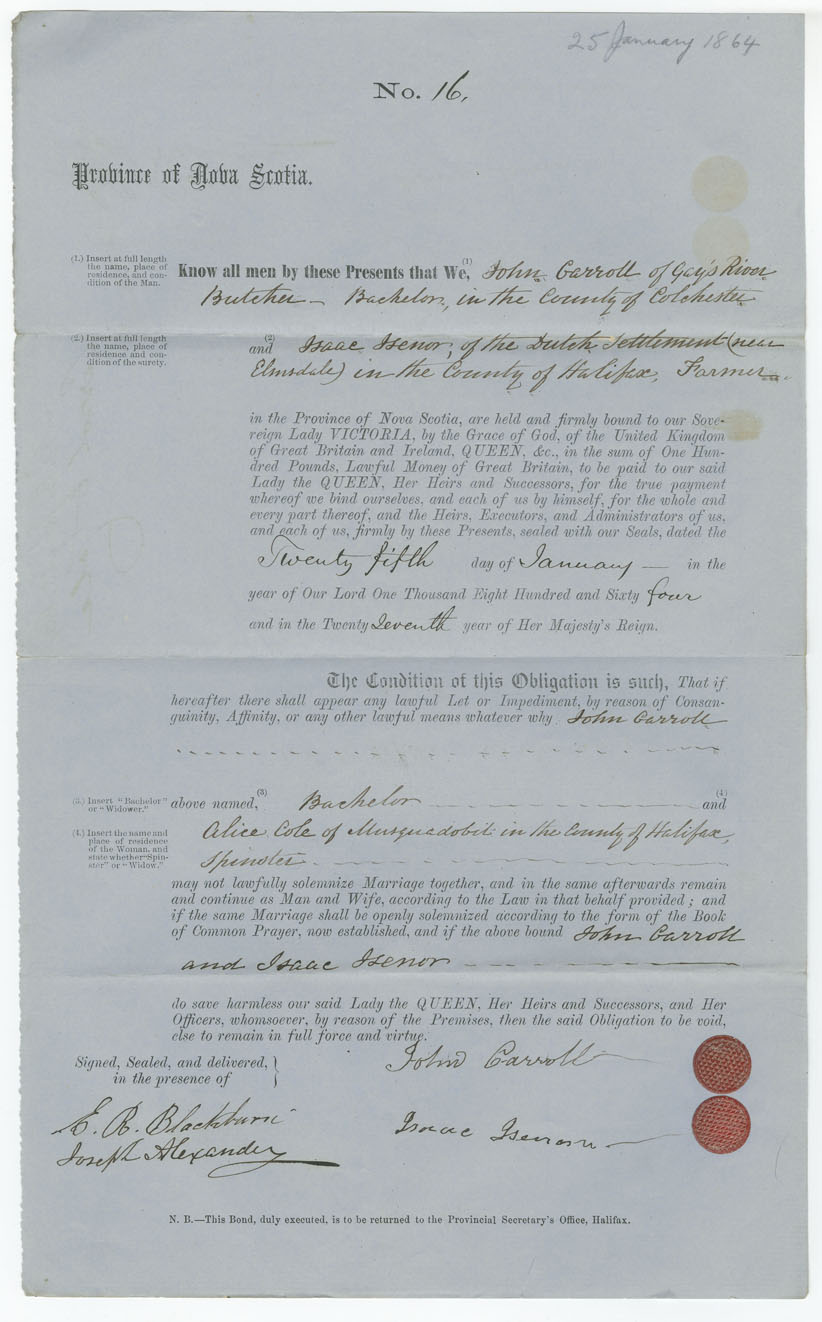 25 January 1864
No. 16,
Province of Nova Scotia.
(1.) Insert at full length
the name, place of
residence, and con-
dition of the Man.
Know all men by these Presents that We,(1) John Carroll of Gay's River
Butcher – Bachelor, in the County of Colchester
(2.) Insert at full length
the name, place of
residence and con-
dition of the surety.
and (2) Isaac Isenor, of the Dutch Settlement (near
Elmsdale) in the County of Halifax, Farmer.
in the Province of Nova Scotia, are held and firmly bound to our Sove-
reign Lady VICTORIA, by the Grace of God, of the United Kingdom
of Great Britain and Ireland, QUEEN, &c., in the sum of One Hun-
dred Pounds, Lawful Money of Great Britain, to be paid to our said
Lady the QUEEN, Her Heirs and Successors, for the true payment
whereof we bind ourselves, and each of us by himself, for the whole and
every part thereof, and the Heirs, Executors, and Administrators of us,
and each of us, firmly by these Presents, sealed with our Seals, dated the
Twenty fifth day of January — in the
year of Our Lord One Thousand Eight Hundred and Sixty four
and in the Twenty Seventh year of Her Majesty's Reign.
The Condition of this Obligation is such, That if
hereafter there shall appear any lawful Let or Impediment, by reason of Consan-
guinity, Affinity, or any other lawful means whatever why John Carroll
(3.) Insert "Bachelor"
or "Widower."
above named,(3) Bachelor (4) and
(4.) Insert the name and
place of residence
of the Woman, and
state whether "Spin-
ster" or "Widow."
Alice Cole of Musquodobit in the County of Halifax,
Spinster
may not lawfully solemnize Marriage together, and in the same afterwards remain
and continue as Man and Wife, according to the Law in that behalf provided; and
if the same Marriage shall be openly solemnized according to the form of the Book
of Common Prayer, now established, and if the above bound John Carroll
and Isaac Isenor
do save harmless our said Lady the QUEEN, Her Heirs and Successors, and Her
Officers, whomsoever, by reason of the Premises, then the said Obligation to be void,
else to remain in full force and virtue.
Signed, Sealed, and delivered,
in the presence of
John Carroll
E. R. Blackburn
Isaac Isenor
Joseph Alexander
N. B.—This Bond, duly executed, is to be returned to the Provincial Secretary's Office, Halifax.